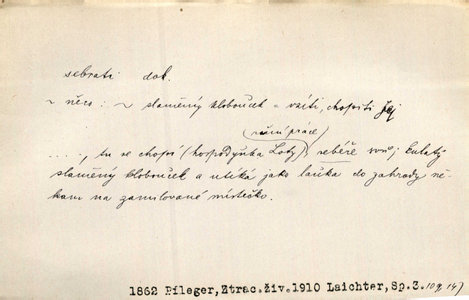 sebrati dok.
~ něco : ~ slaměný klobouček = vzíti, chopiti jej
(ruční práce)
...., tu se chopí (hospodyňka Loty) sebéře svůj kulatý
slaměný klobouček a utíká jako laňka do zahrady ně-
kam na zamilované místečko.
1862 Pfleger, Ztrac.živ.1910 Laichter, Sp.3. 109, 147